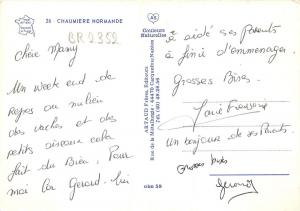 26 CHAUMIÈRE NORMANDE
BR 2352
Chère Mamy
Un week end de
repos au milieu
des vaches et des
petits oiseaux cela
fait du Bien, Pour
moi Car Gérard-lui
Couleurs
Naturelles
ARTAUD Frères Éditeurs
Rue de la Métallurgie - 44470 Carquefou-Nantes
à aidé ses Parents
à fini d'emménager.
Grosses Bises
un bonjour de ses Parents.
Grosses bises
Gérard